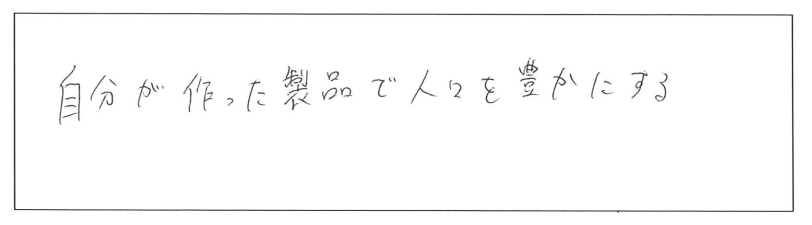 自分が作った製品で人々を豊かにする